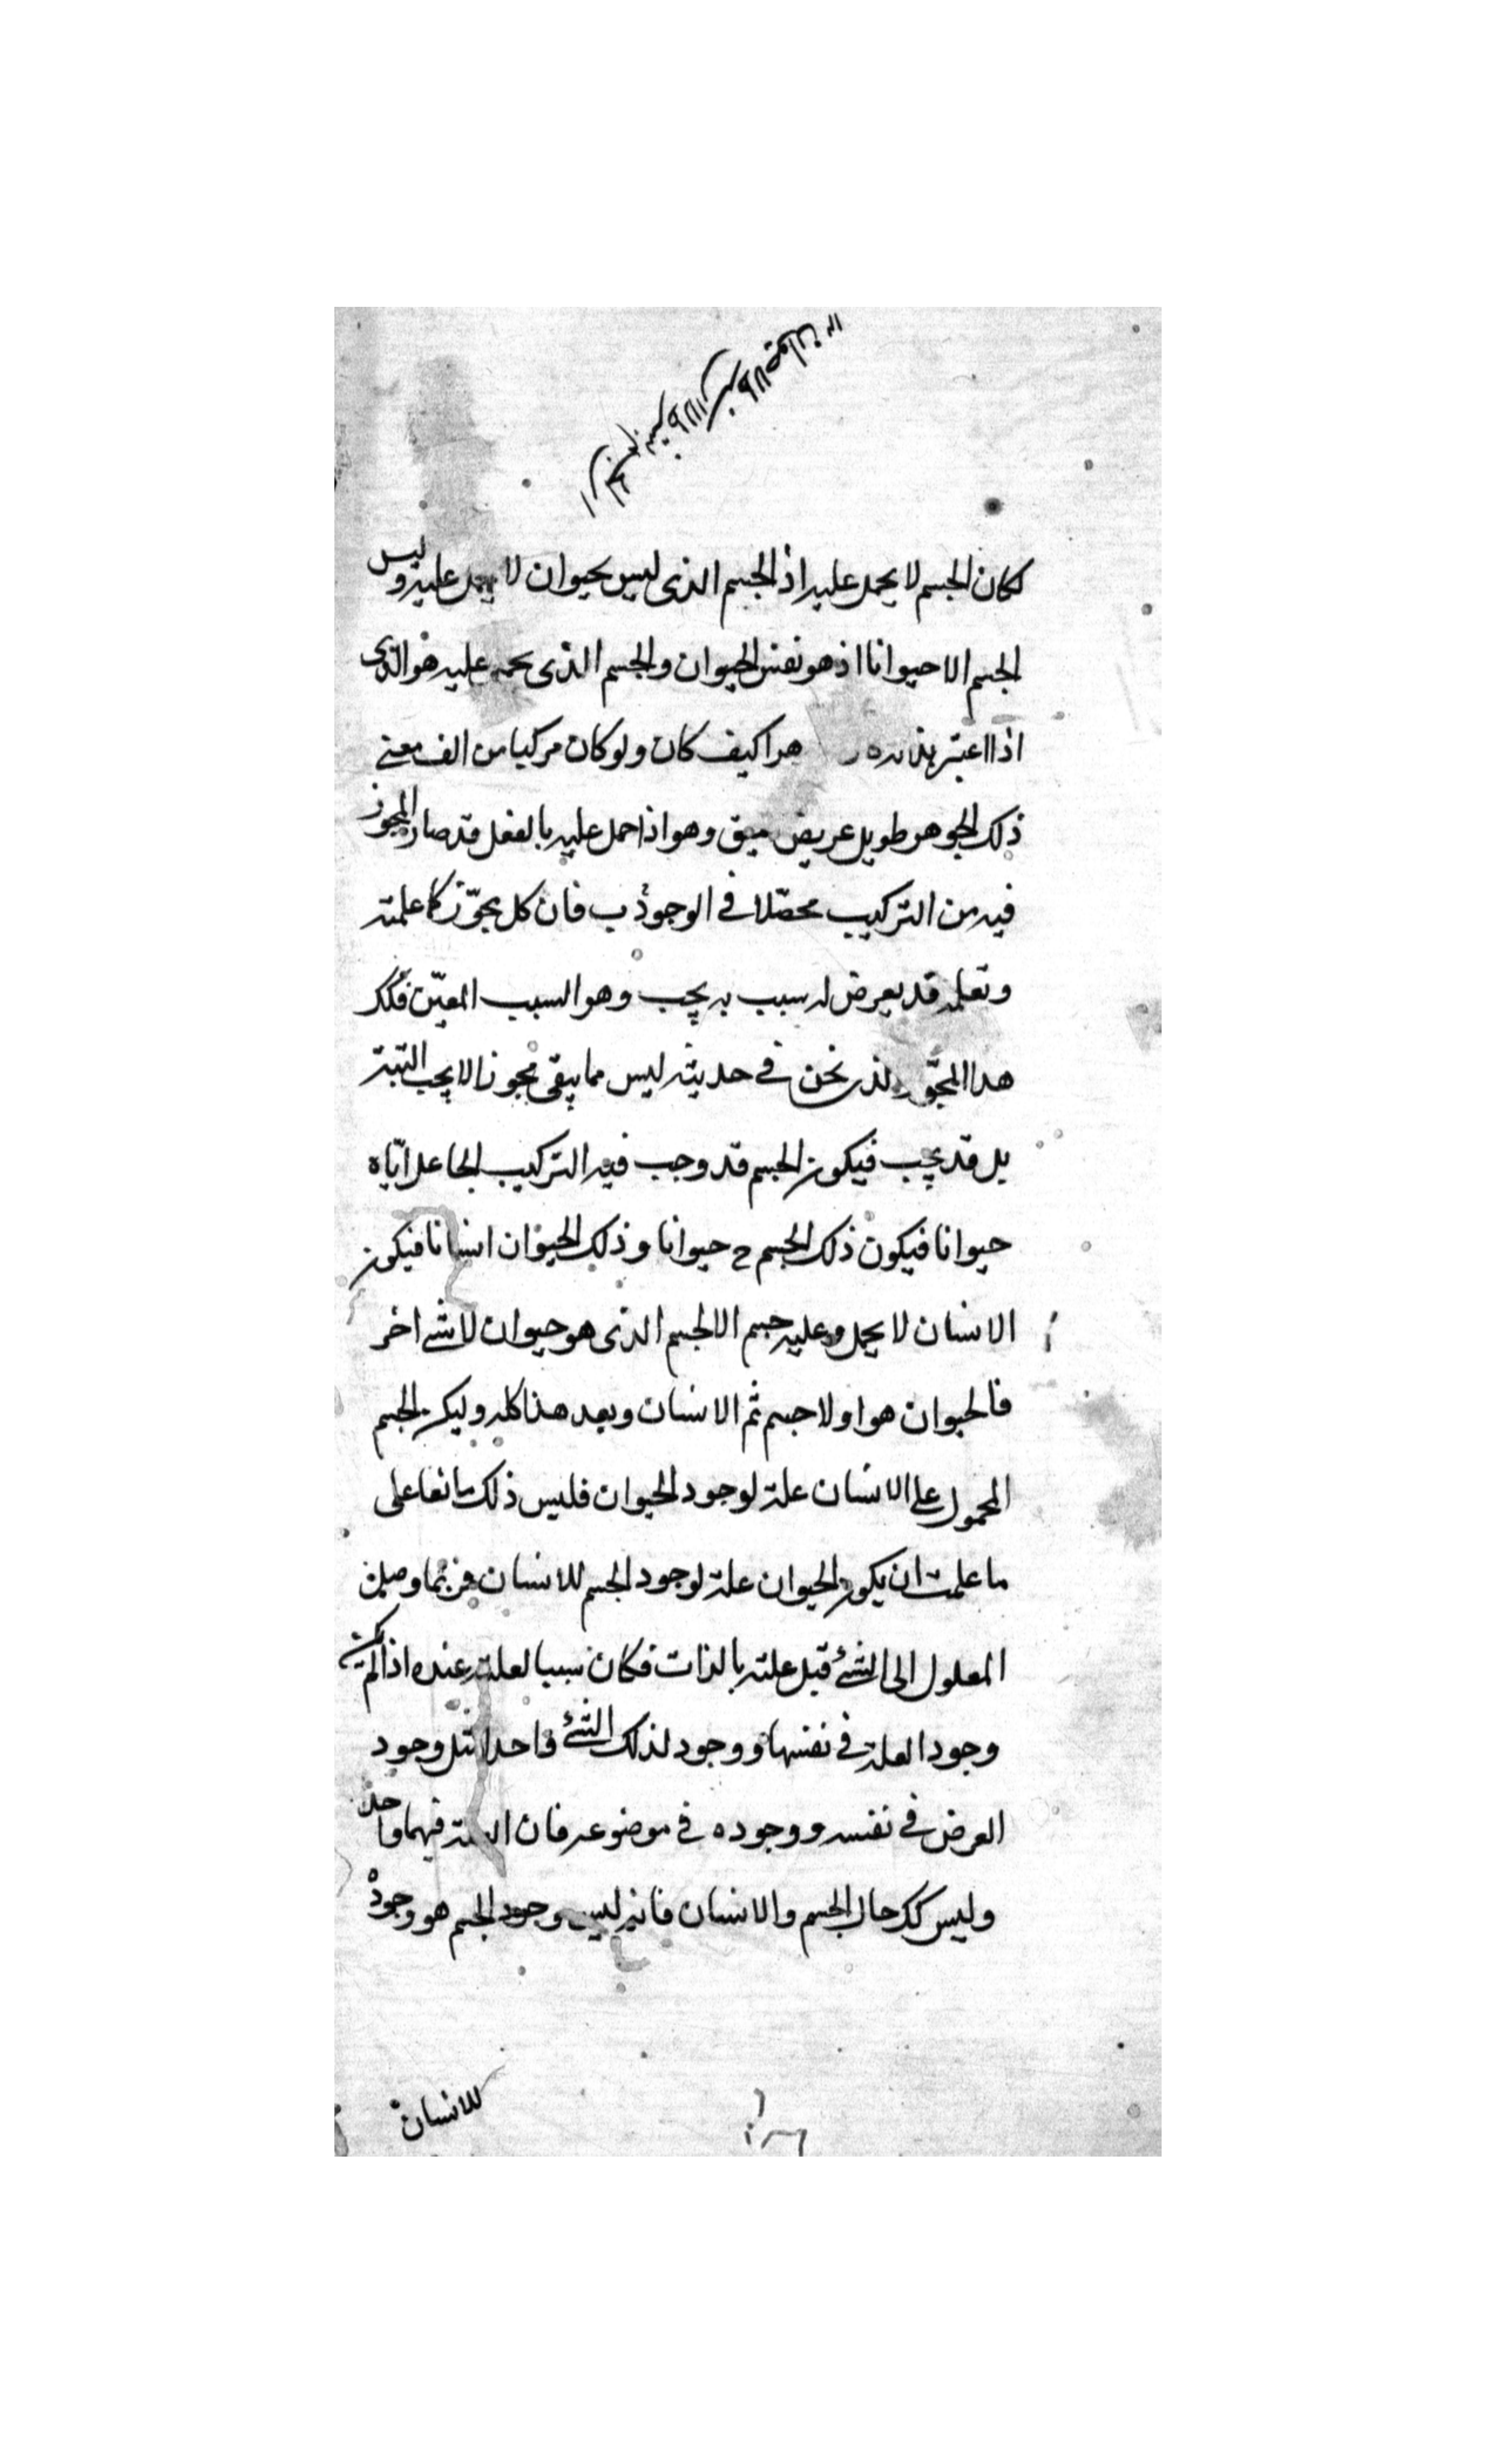 لكان الجسم لا يحمل عليه اذ الجسم الذى ليس بحيوان لا يحمل عليه وليس
الجسم الا حيوانا اذ هو نفس الحيوان والجسم الذى يحمل عليه هو الذى
اذا اعتبر بذاته هرا كيف كان ولو كان مركبا من الف معنى
ذلك الجوهر طويل عريض عميق وهو اذا حمل عليه بالفعل قد صار المجوز
فيه من التركيب محصّلا فى الوجود ب فان كل مجوّز كما علمته
وتعلمه قد يعرض له سبب به يجب وهو السبب المعيّن فكك
هذا المجوّز الذى نحن فى حديثه ليس مما يبقى مجوزا لا يجب البتة
بل قد يجب فيكون الجسم قد وجب فيه التركيب الجاعل ايّاه
حيوانا فيكون ذلك الجسم ح حيوانا وذلك الحيوان انسانا فيكون
الانسان لا يحمل عليه جسم الا الجسم الذى هو حيوان لا شئ اخر
فالحيوان هو اولا جسم ثم الانسان وبعد هذا كله وليكن الجسم
المحمول على الانسان علة لوجود الحيوان فليس ذلك مانعا على
ما علمت ان يكون الحيوان علة لوجود الجسم للانسان فربما وصل
المعلول الى الشئ قبل علته بالذات فكان سببا لعلته عنده اذا لم يكن
وجود العلة فى نفسها ووجود لذلك الشئ واحدا مثل وجود
العرض فى نفسه ووجوده فى موضوعه فان العلة فيهما واحد
وليس كك حال الجسم والانسان فانه ليس وجود الجسم هو وجوده
للانسان